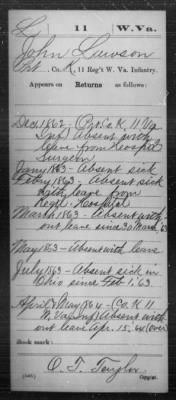 L 11 W.Va.
John Lawson
Pvt, Co. K, 11 Reg't W. Va. Infantry.
Appears on Returns as follows:
Dec 1862 - Co K 11 Va
Inf) Absent with
leave from Hospital
Surgeon
Jany 1863 - Absent sick
Feby 1863 - Absent sick
with leave from
Regtl. Hospital
March 1863 - Absent with
out leave since 30 March 63
May 1863 - Absent with leave
July 1863 - Absent sick in
Ohio since Feb 1, 63.
April & May 1864 - Co. K 11
W. Va Inf) Absent with
out leave Apr. 15, 64 (over)
Book mark:
O. T. Taylor
(546) Copyist.